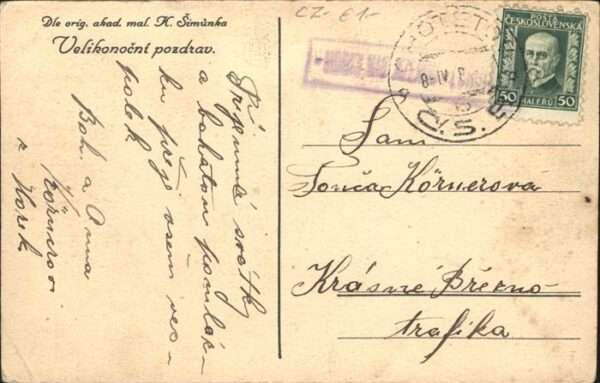 Dle orig. akad. mal. K. Šimůnka
Velikonoční pozdrav.
CZ- €1-
POŠTA
ČESKOSLOVENSKÁ
50 HALÉŘŮ 50
8-IV
Příjemné svátky
a bohatou pomláz-
ku přeje všem ves-
polek
Boh. a Anna
Körnerovi
z Horek
Slam
Tonča Körnerová
Krásné Březno
trafika